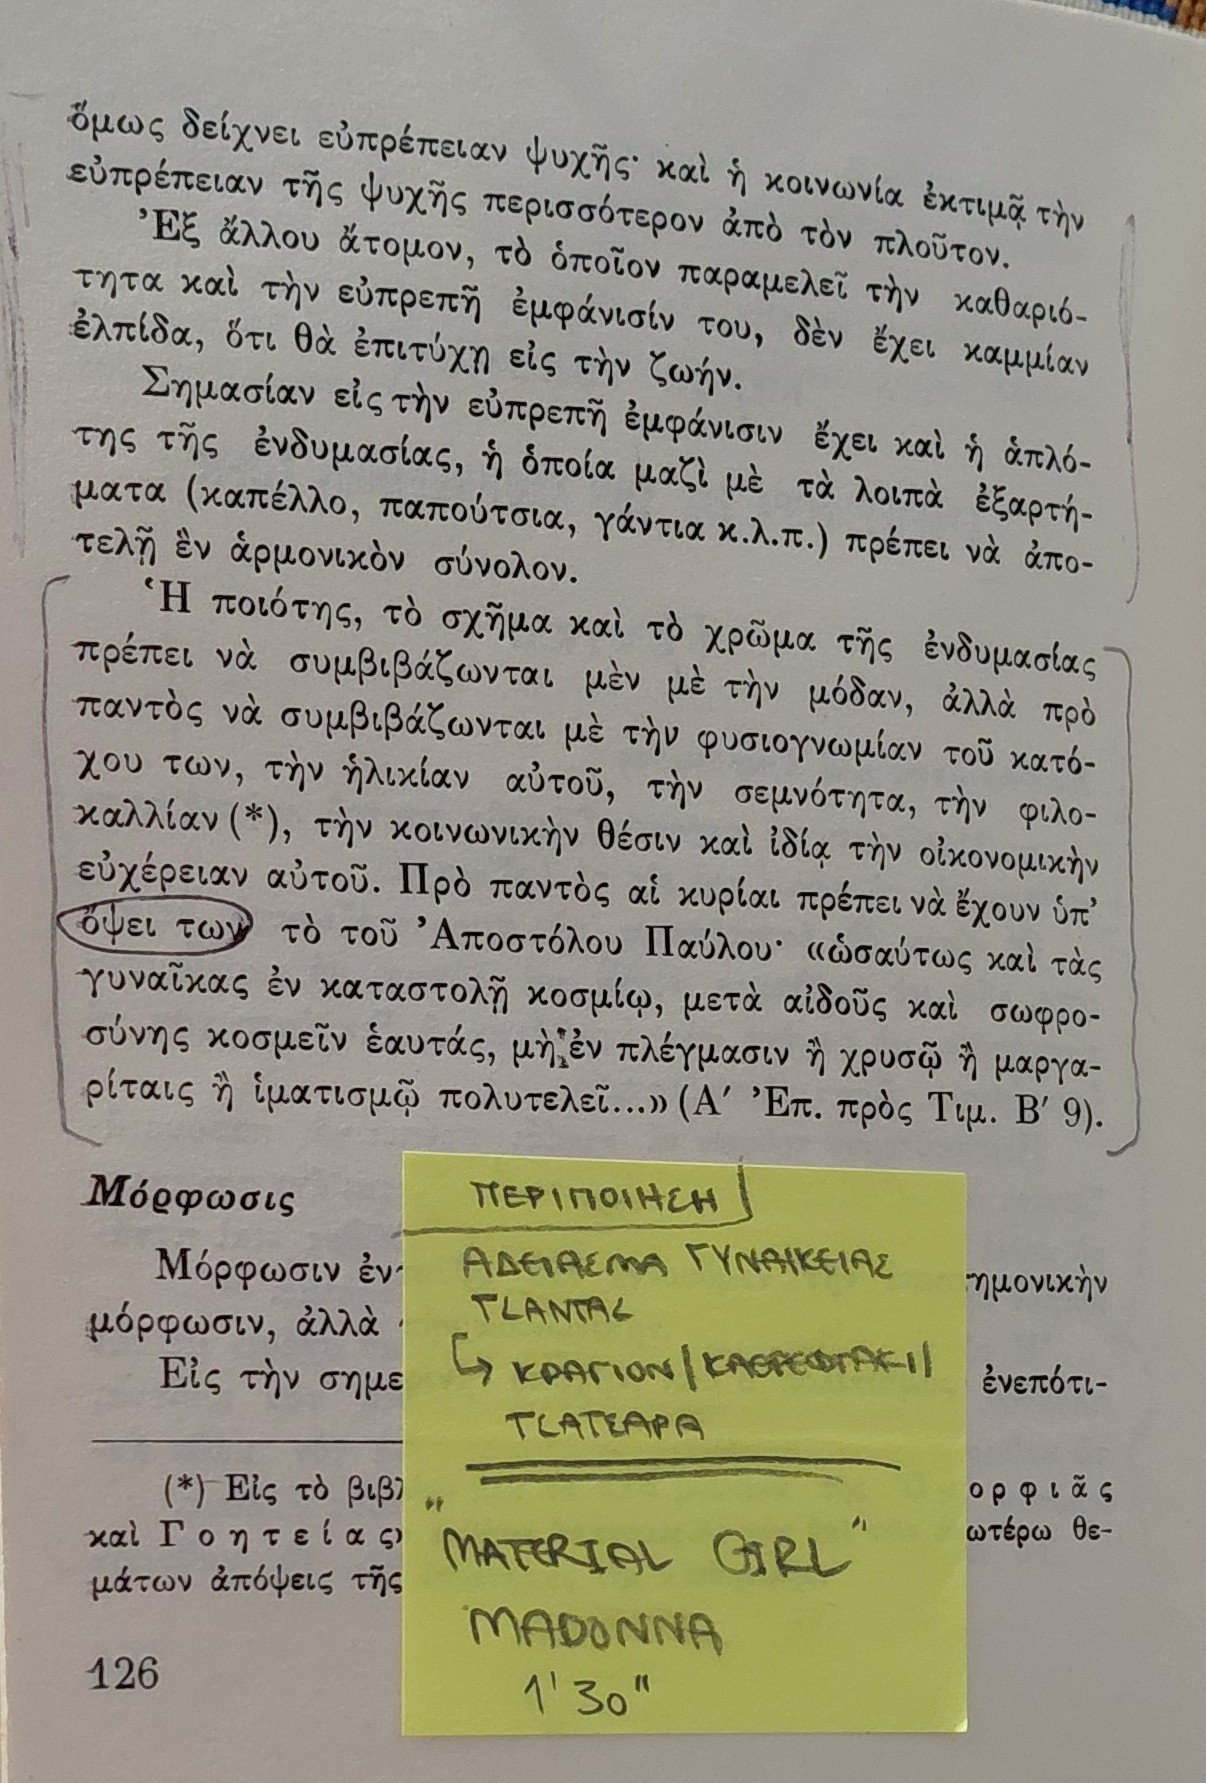 ὅμως δείχνει εὐπρέπειαν ψυχῆς· καὶ ἡ κοινωνία ἐκτιμᾷ τὴν
εὐπρέπειαν τῆς ψυχῆς περισσότερον ἀπὸ τὸν πλοῦτον.
Ἐξ ἄλλου ἄτομον, τὸ ὁποῖον παραμελεῖ τὴν καθαριό-
τητα καὶ τὴν εὐπρεπῆ ἐμφάνισίν του, δὲν ἔχει καμμίαν
ἐλπίδα, ὅτι θὰ ἐπιτύχῃ εἰς τὴν ζωήν.
Σημασίαν εἰς τὴν εὐπρεπῆ ἐμφάνισιν ἔχει καὶ ἡ ἁπλό-
της τῆς ἐνδυμασίας, ἡ ὁποία μαζὶ μὲ τὰ λοιπὰ ἐξαρτή-
ματα (καπέλλο, παπούτσια, γάντια κ.λ.π.) πρέπει νὰ ἀπο-
τελῇ ἓν ἁρμονικὸν σύνολον.
Ἡ ποιότης, τὸ σχῆμα καὶ τὸ χρῶμα τῆς ἐνδυμασίας
πρέπει νὰ συμβιβάζωνται μὲν μὲ τὴν μόδαν, ἀλλὰ πρὸ
παντὸς νὰ συμβιβάζωνται μὲ τὴν φυσιογνωμίαν τοῦ κατό-
χου των, τὴν ἡλικίαν αὐτοῦ, τὴν σεμνότητα, τὴν φιλο-
καλλίαν (*), τὴν κοινωνικὴν θέσιν καὶ ἰδίᾳ τὴν οἰκονομικὴν
εὐχέρειαν αὐτοῦ. Πρὸ παντὸς αἱ κυρίαι πρέπει νὰ ἔχουν ὑπ'
ὄψει των τὸ τοῦ Ἀποστόλου Παύλου· «ὡσαύτως καὶ τὰς
γυναῖκας ἐν καταστολῇ κοσμίῳ, μετὰ αἰδοῦς καὶ σωφρο-
σύνης κοσμεῖν ἑαυτάς, μὴ ἐν πλέγμασιν ἢ χρυσῷ ἢ μαργα-
ρίταις ἢ ἱματισμῷ πολυτελεῖ...» (Α′ Ἐπ. πρὸς Τιμ. Β′ 9).
Μόρφωσις
Μόρφωσιν ἐν
τημονικὴν
μόρφωσιν, ἀλλὰ
Εἰς τὴν σημε
ἐνεπότι-
(*) Εἰς τὸ βιβλ
ορφιᾶς
καὶ Γοητείας»
ωτέρω θε-
μάτων ἀπόψεις τῆς
126
ΠΕΡΙΠΟΙΗΣΗ
ΑΔΕΙΑΣΜΑ ΓΥΝΑΙΚΕΙΑΣ
ΤΣΑΝΤΑΣ
↳ ΚΡΑΓΙΟΝ/ΚΑΘΡΕΦΤΑΚΙ/
ΤΣΑΤΣΑΡΑ
"MATERIAL GIRL"
MADONNA
1'30"